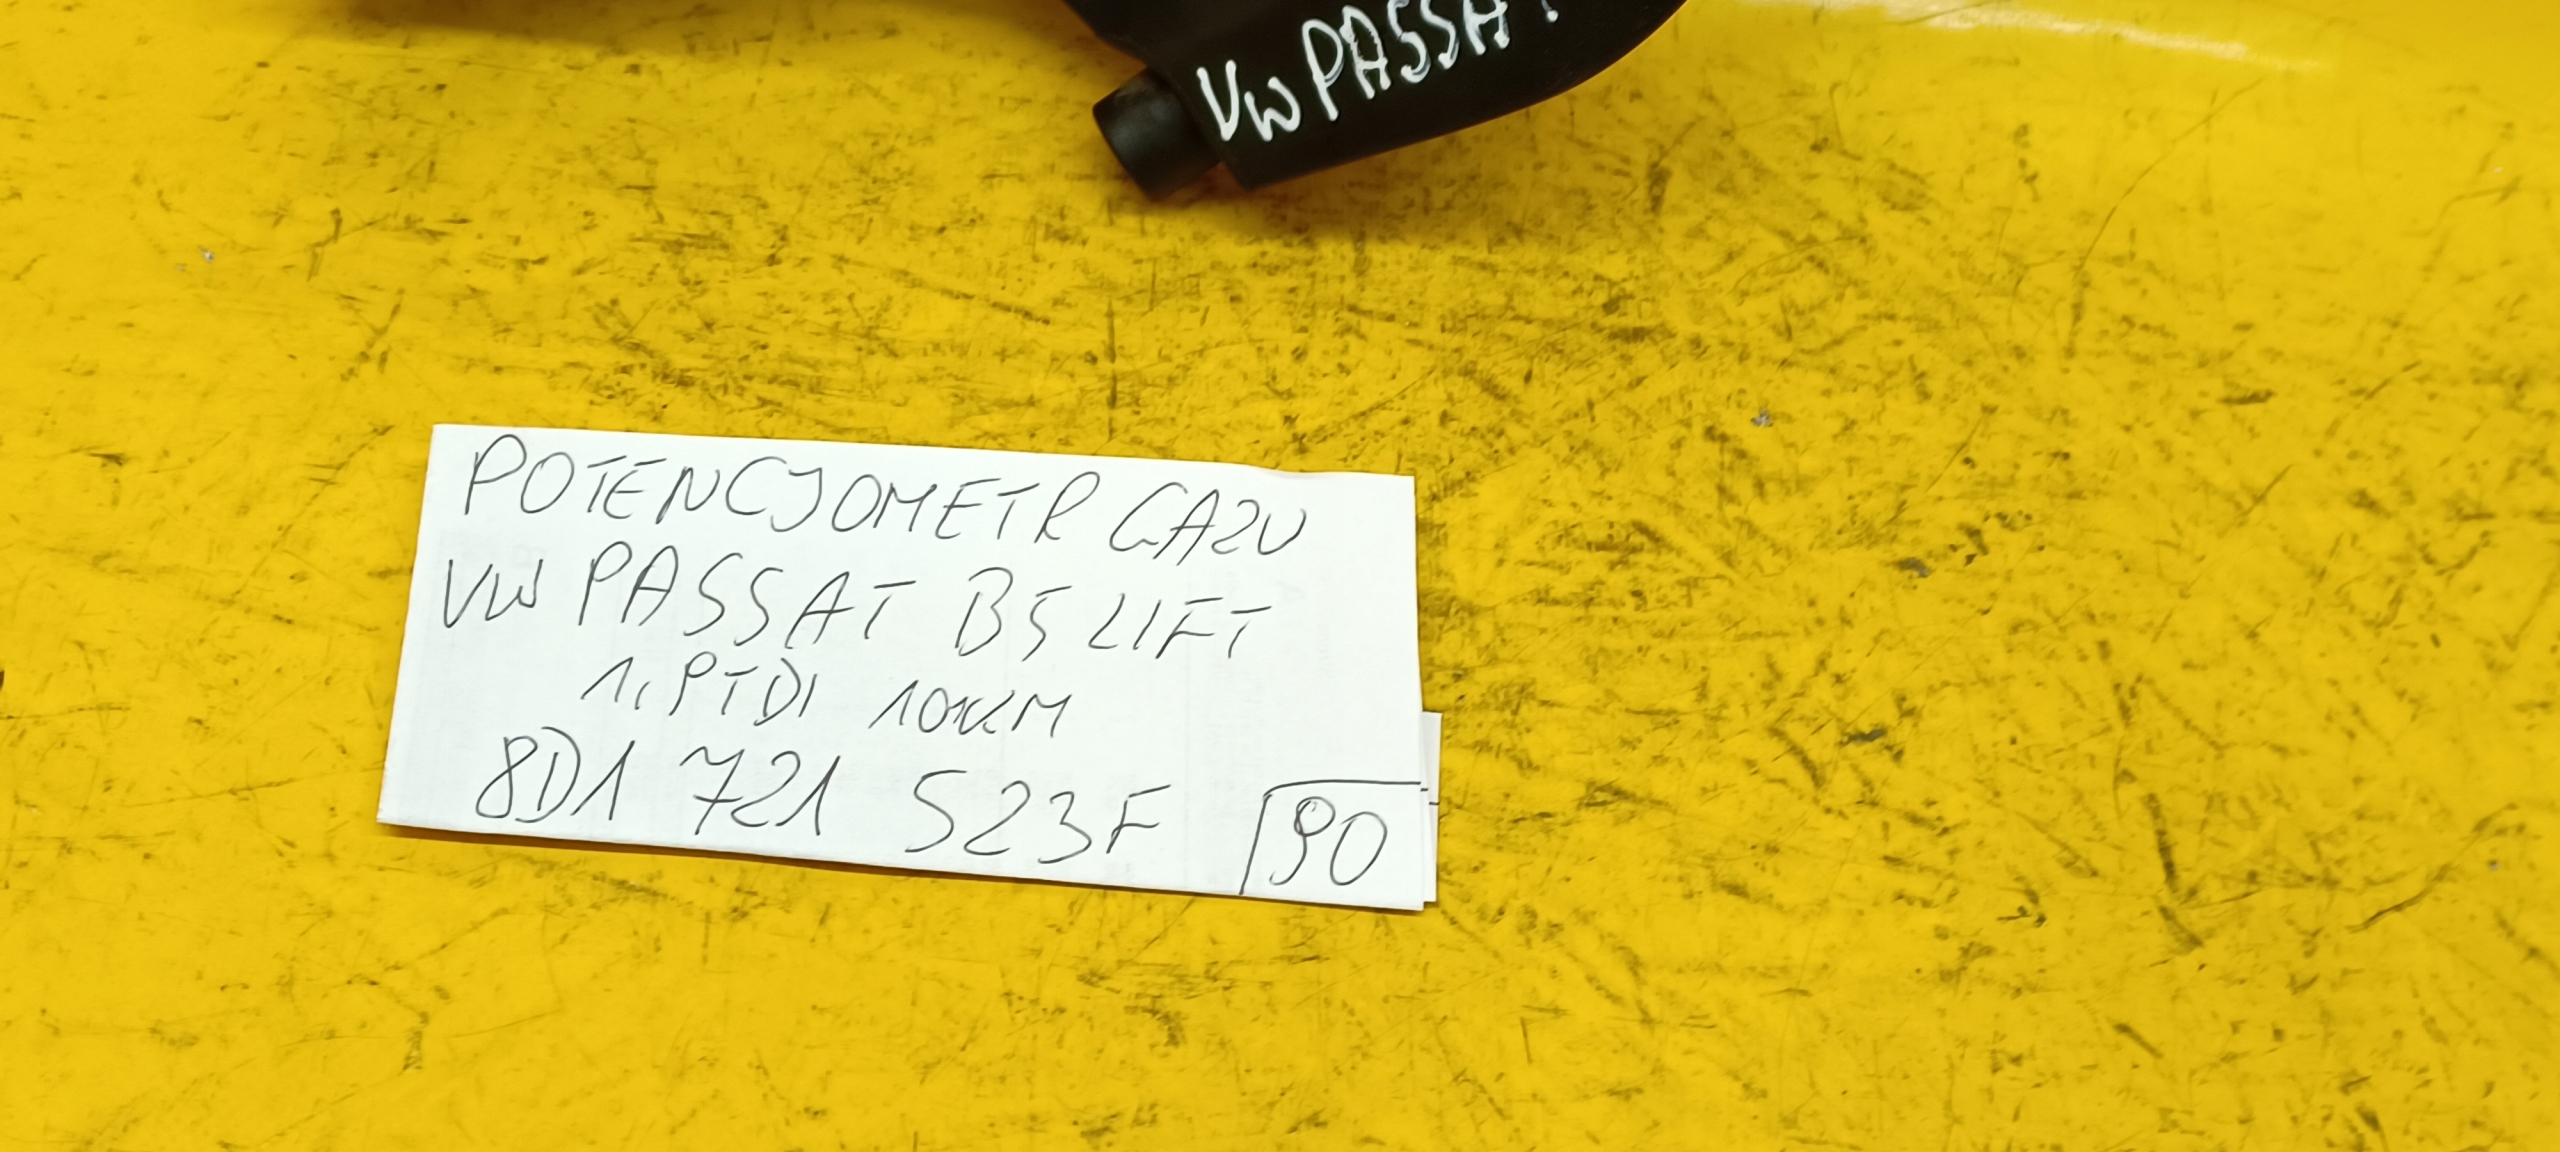 VW PASSAT
POTENCJOMETR GAZU
VW PASSAT B5 LIFT
1,9TDI 101KM
8D1 721 523F 90